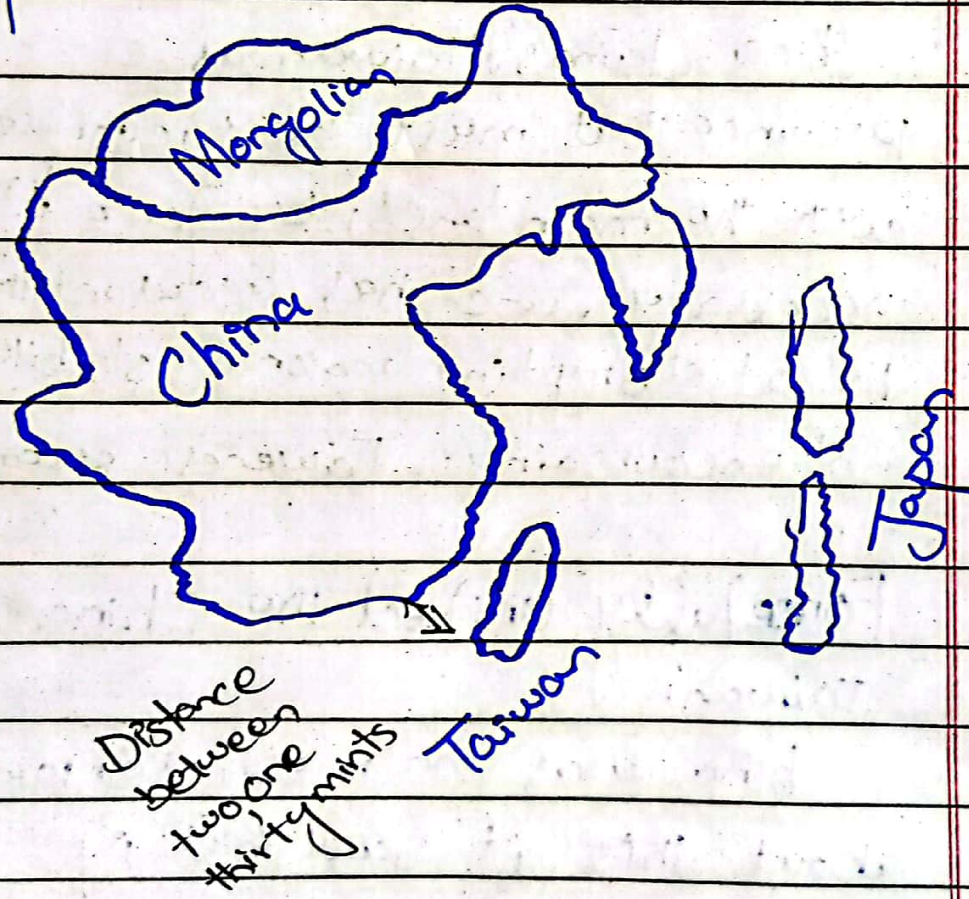 Mongolian
China
Japan
Taiwan
Distance
between
two, one
thirty mints